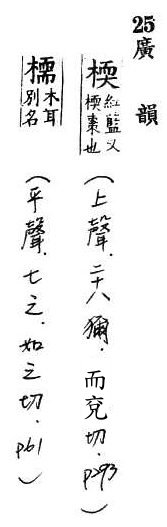 25廣韻
檽 紅藍又檽棗也（上聲．二十八獮．而兗切．p293）
檽 木耳別名（平聲．七之．如之切．p61）